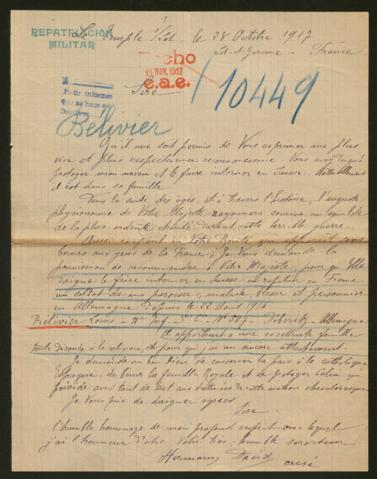 Le Temple s/Lot, le 28 Octobre 1917
REPATRIACION
MILITAR
Lot-et-Garonne - France
Hecho
15 NOV. 1917
c.a.e.
Sire
10449
Belivier
Qu'il me soit permis de Vous exprimer ma plus
vive et plus respectueuse reconnaissance. Vous avez daigné
protéger mon neveu et le faire interner en Suisse. Actuellement
il est dans sa famille.
Dans la suite des âges, et à travers l'histoire, l'auguste
physionomie de Votre Majesté rayonnera comme un symbole
de la plus ardente charité durant cette terrible guerre.
Aussi confiant en Votre Bonté que
aux yeux de la France, je Vous demande la
permission de recommander à Votre Majesté, pour qu'Elle
daigne le faire interner en Suisse ou rapatrier en France
un soldat de ma paroisse, malade, blessé et prisonnier
en Allemagne depuis le 22 Août 1914
Belivier Louis - Döberitz - Allemagne
Il appartient à une excellente famille
toute dévouée à la religion, et pour qui j'ai un sincère attachement.
Je demande au bon Dieu de conserver la paix à la catholique
Espagne, de bénir la famille Royale et de protéger Celui qui
préside avec tant de tact aux destinées de cette nation chevaleresque
Je Vous prie de daigner agréer
Sire
l'humble hommage de mon profond respect avec lequel
j'ai l'honneur d'être Votre très humble serviteur
David
curé